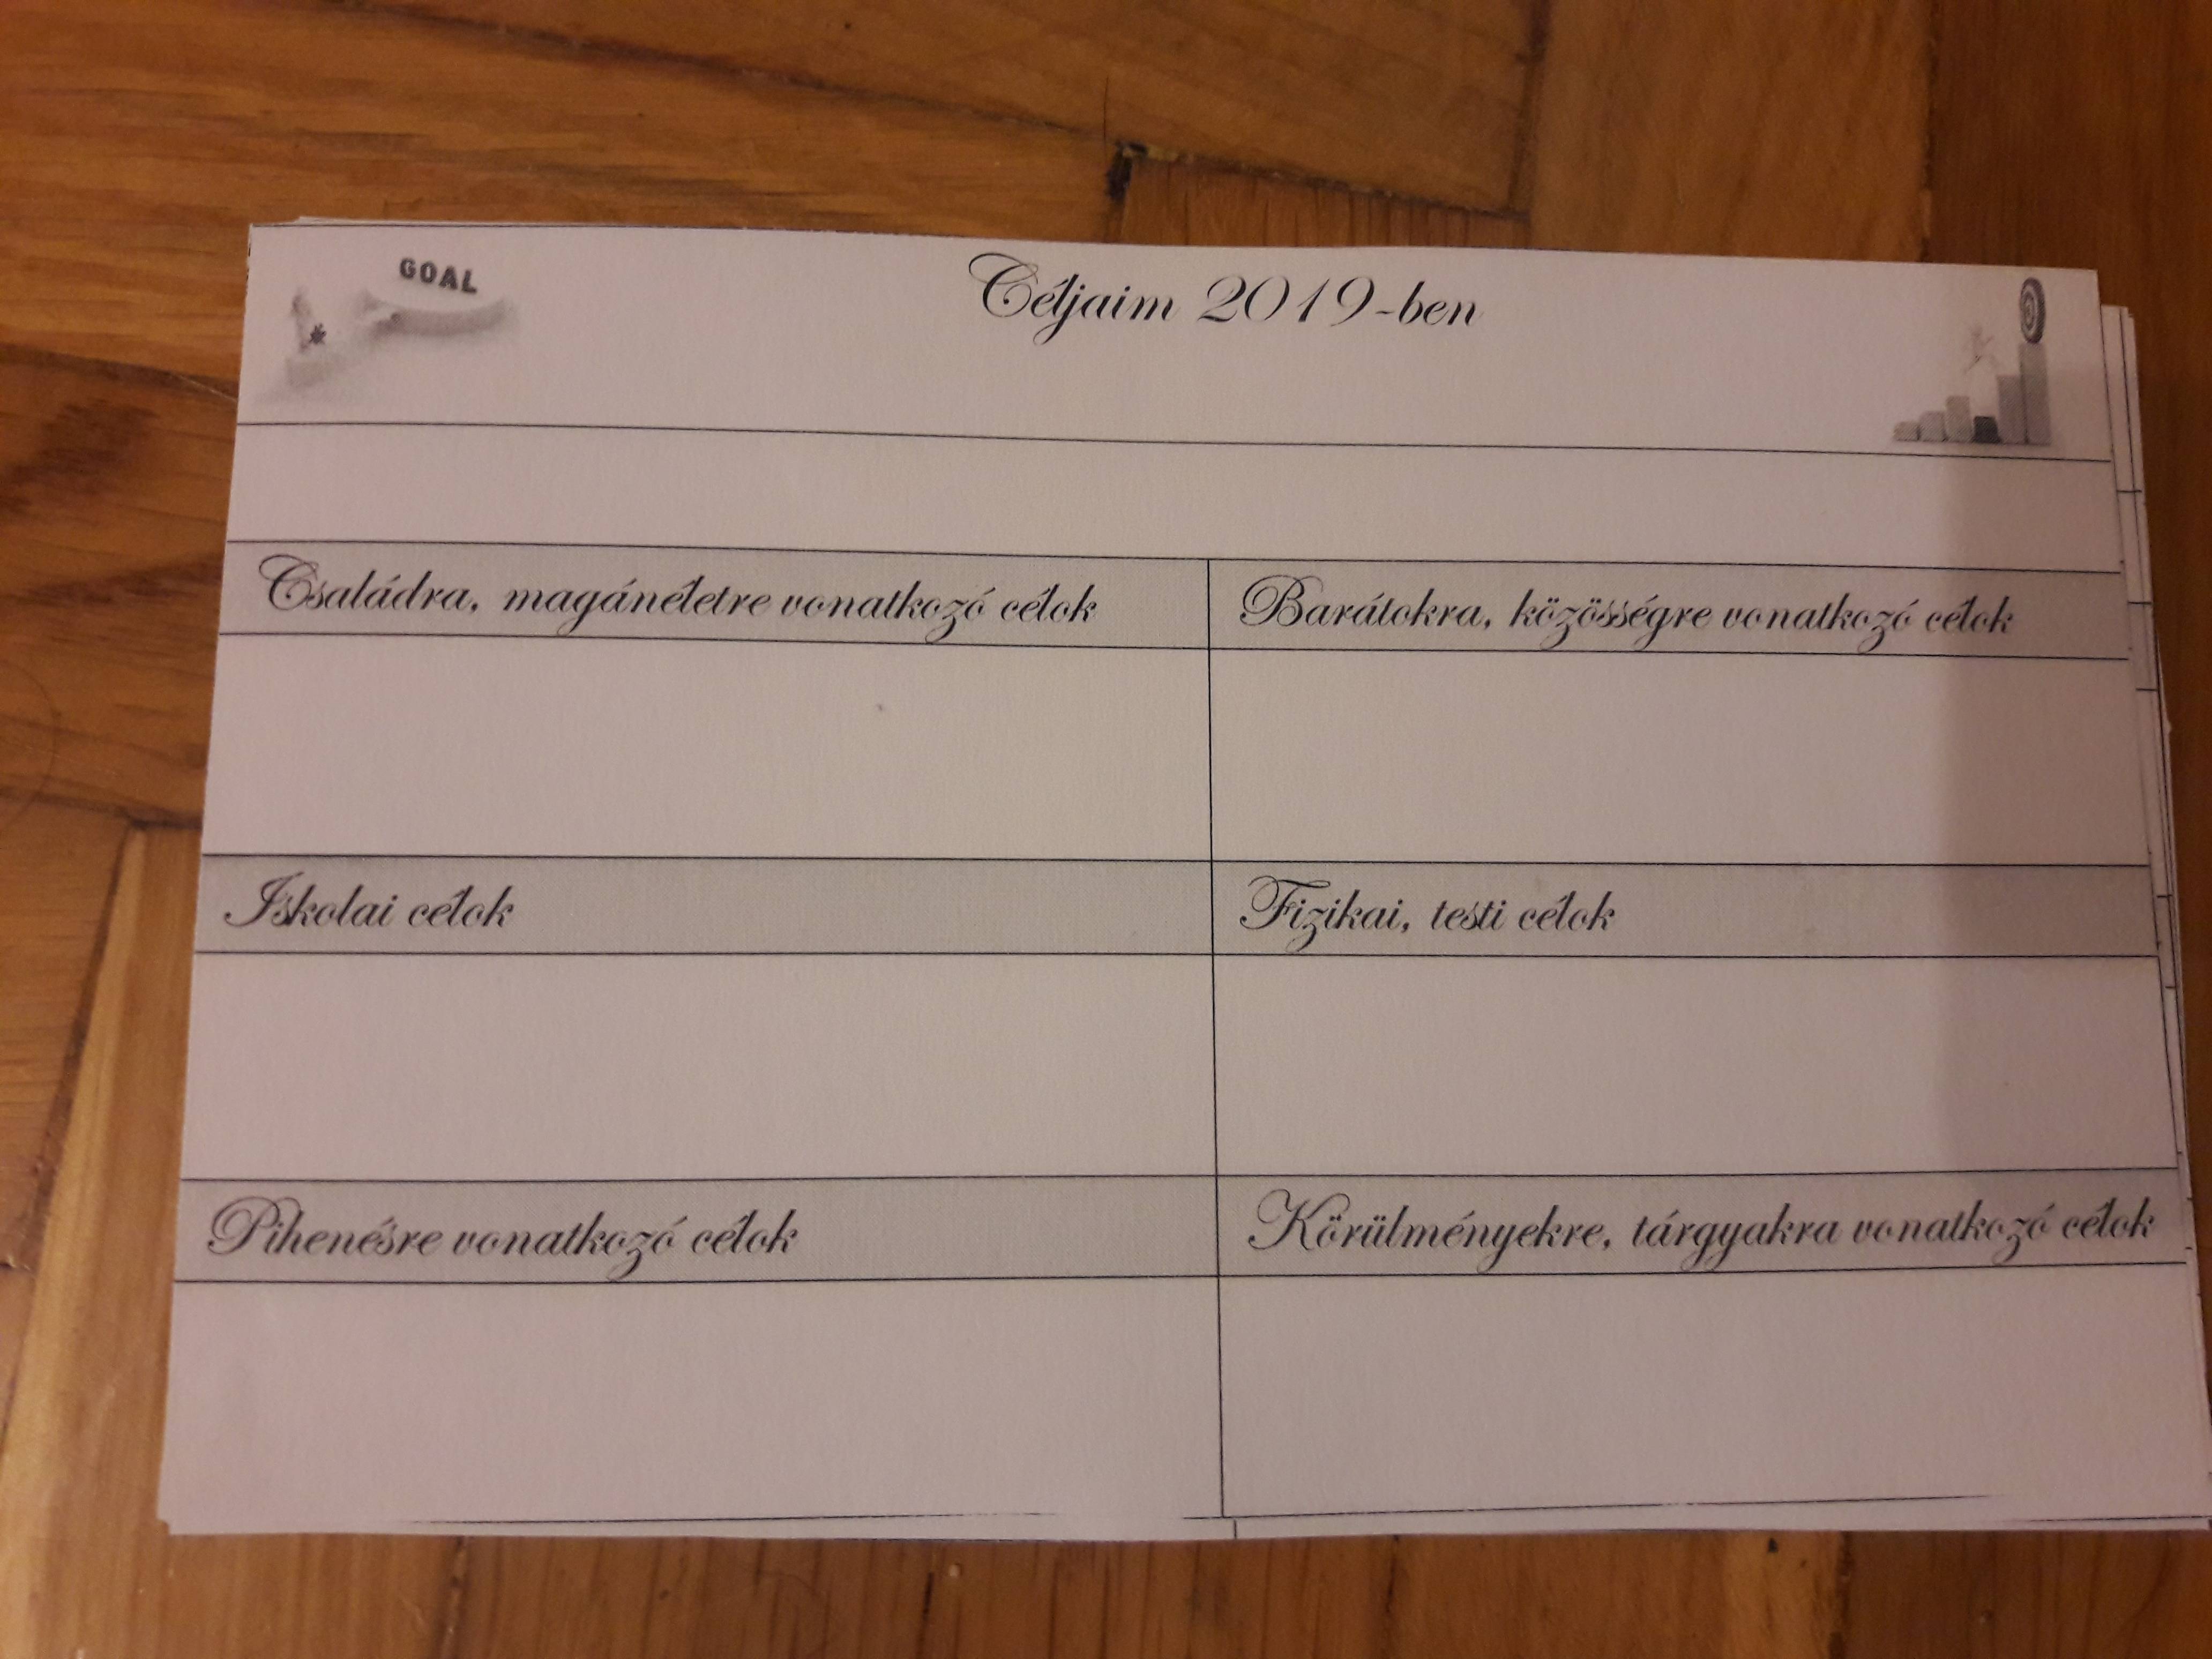 GOAL
Céljaim 2019-ben
Családra, magánéletre vonatkozó célok
Barátokra, közösségre vonatkozó célok
Iskolai célok
Fizikai, testi célok
Pihenésre vonatkozó célok
Körülményekre, tárgyakra vonatkozó célok